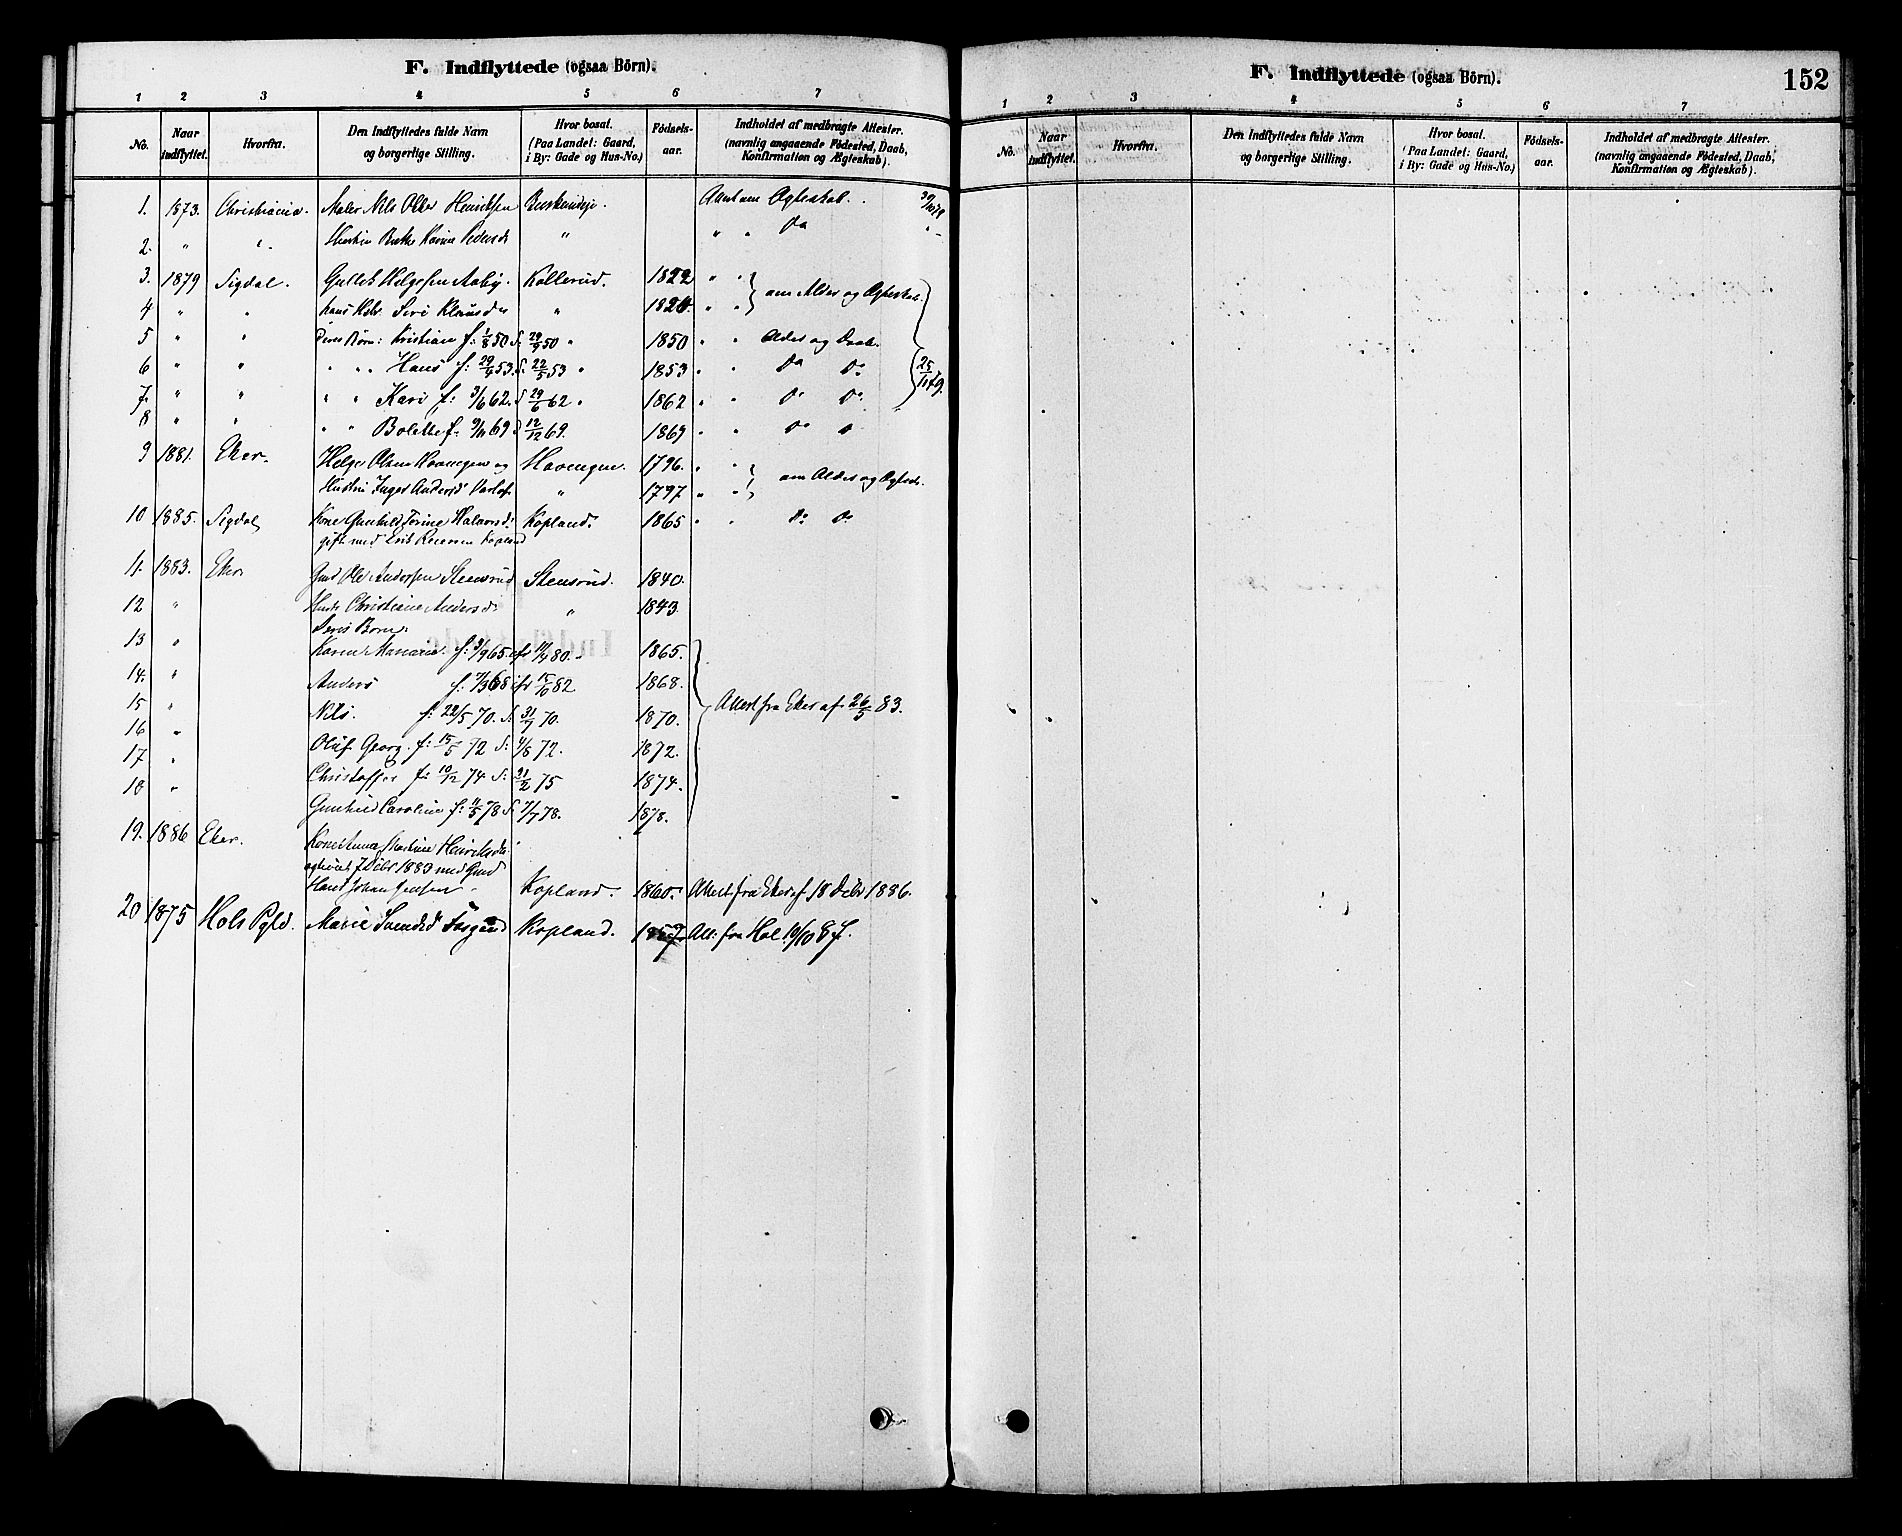 F. Indflyttede (ogsaa Börn).
1 2 3 4 5 6 7
No. Naar indflyttet. Hvorfra. Den Indflyttedes fulde Navn og borgerlige Stilling. Hvor bosat. (Paa Landet: Gaard, i By: Gade og Hus-No.) Födsels-aar. Indholdet af medbragte Attester. (navnlig angaaende Födested, Daab, Konfirmation og Ægteskab).
1. 1873. Christiania. Maler Nils Henriksen Attest om Ægteskab.
2. " " Hustru Karine Peders d. " " " Do
3. 1879 Sigdal. Gullik Helgesen Kollerud. 1822 " "
4 " " hans Siri Klausd " 1824. " " om Alder og Ægteskab.
5 " " deres Børn: Kristian f: 1/8 50 d: 29/9 50 " 1850 " " Alder og Daab.
6 " " " " Hans f: 29/4 53. d. 22/5 53 " 1853 " " Do Do 25/11 79.
7. " " " " Kari f: 3/6 62. d 29/6 62 " 1862 " " Do Do
8 " " " " Bolette f. 9/11 69 d 12/12 69. 1869 " " Do Do
9 1881. Eker. Helge Olsen og 1796. " "
Hustru Inger Andersd " 1797 " " om Alder og
10 1885. Sigdal Kone Gunhild Torine Halvorsd. Kopland. 1865 " " Do Do
gift med Kopland
11. 1883. Eker Gmd Ole Andersen Stensrud Stensrud. 1840.
12 " Hustr Christiane Anders d. " 1843
Deres Børn:
13 " Karen f: 9/9 65. 80. 1865.
14. " Anders 82 1868.
15 " Nils. f: 22/5 70. d: 31/7 70. 1870. Attest fra Eker af 26/5 83.
16 "
17 " Oluf Georg. f: 15/5 72 d: 4/8 72. 1872.
18 " Christoffer f: 10/12 74 d: 21/2 75 1874.
Gunhild Caroline f: 78 d: 7/7 78. 1878.
19. 1886 Eker. Kone Anna Martine Henriksd.
1883 med Gmd
Hans Johan Kopland. 1860. Attest fra Eker af 18 Debr 1886.
20 1875 Hols Pgld. Marie Kopland. 1857 Att: fra Hol 10/10 87.
F. Indflyttede (ogsaa Börn). 152
1 2 3 4 5 6 7
No. Naar indflyttet. Hvorfra. Den Indflyttedes fulde Navn og borgerlige Stilling. Hvor bosat. (Paa Landet: Gaard, i By: Gade og Hus-No.) Födsels-aar. Indholdet af medbragte Attester. (navnlig angaaende Födested, Daab, Konfirmation og Ægteskab).